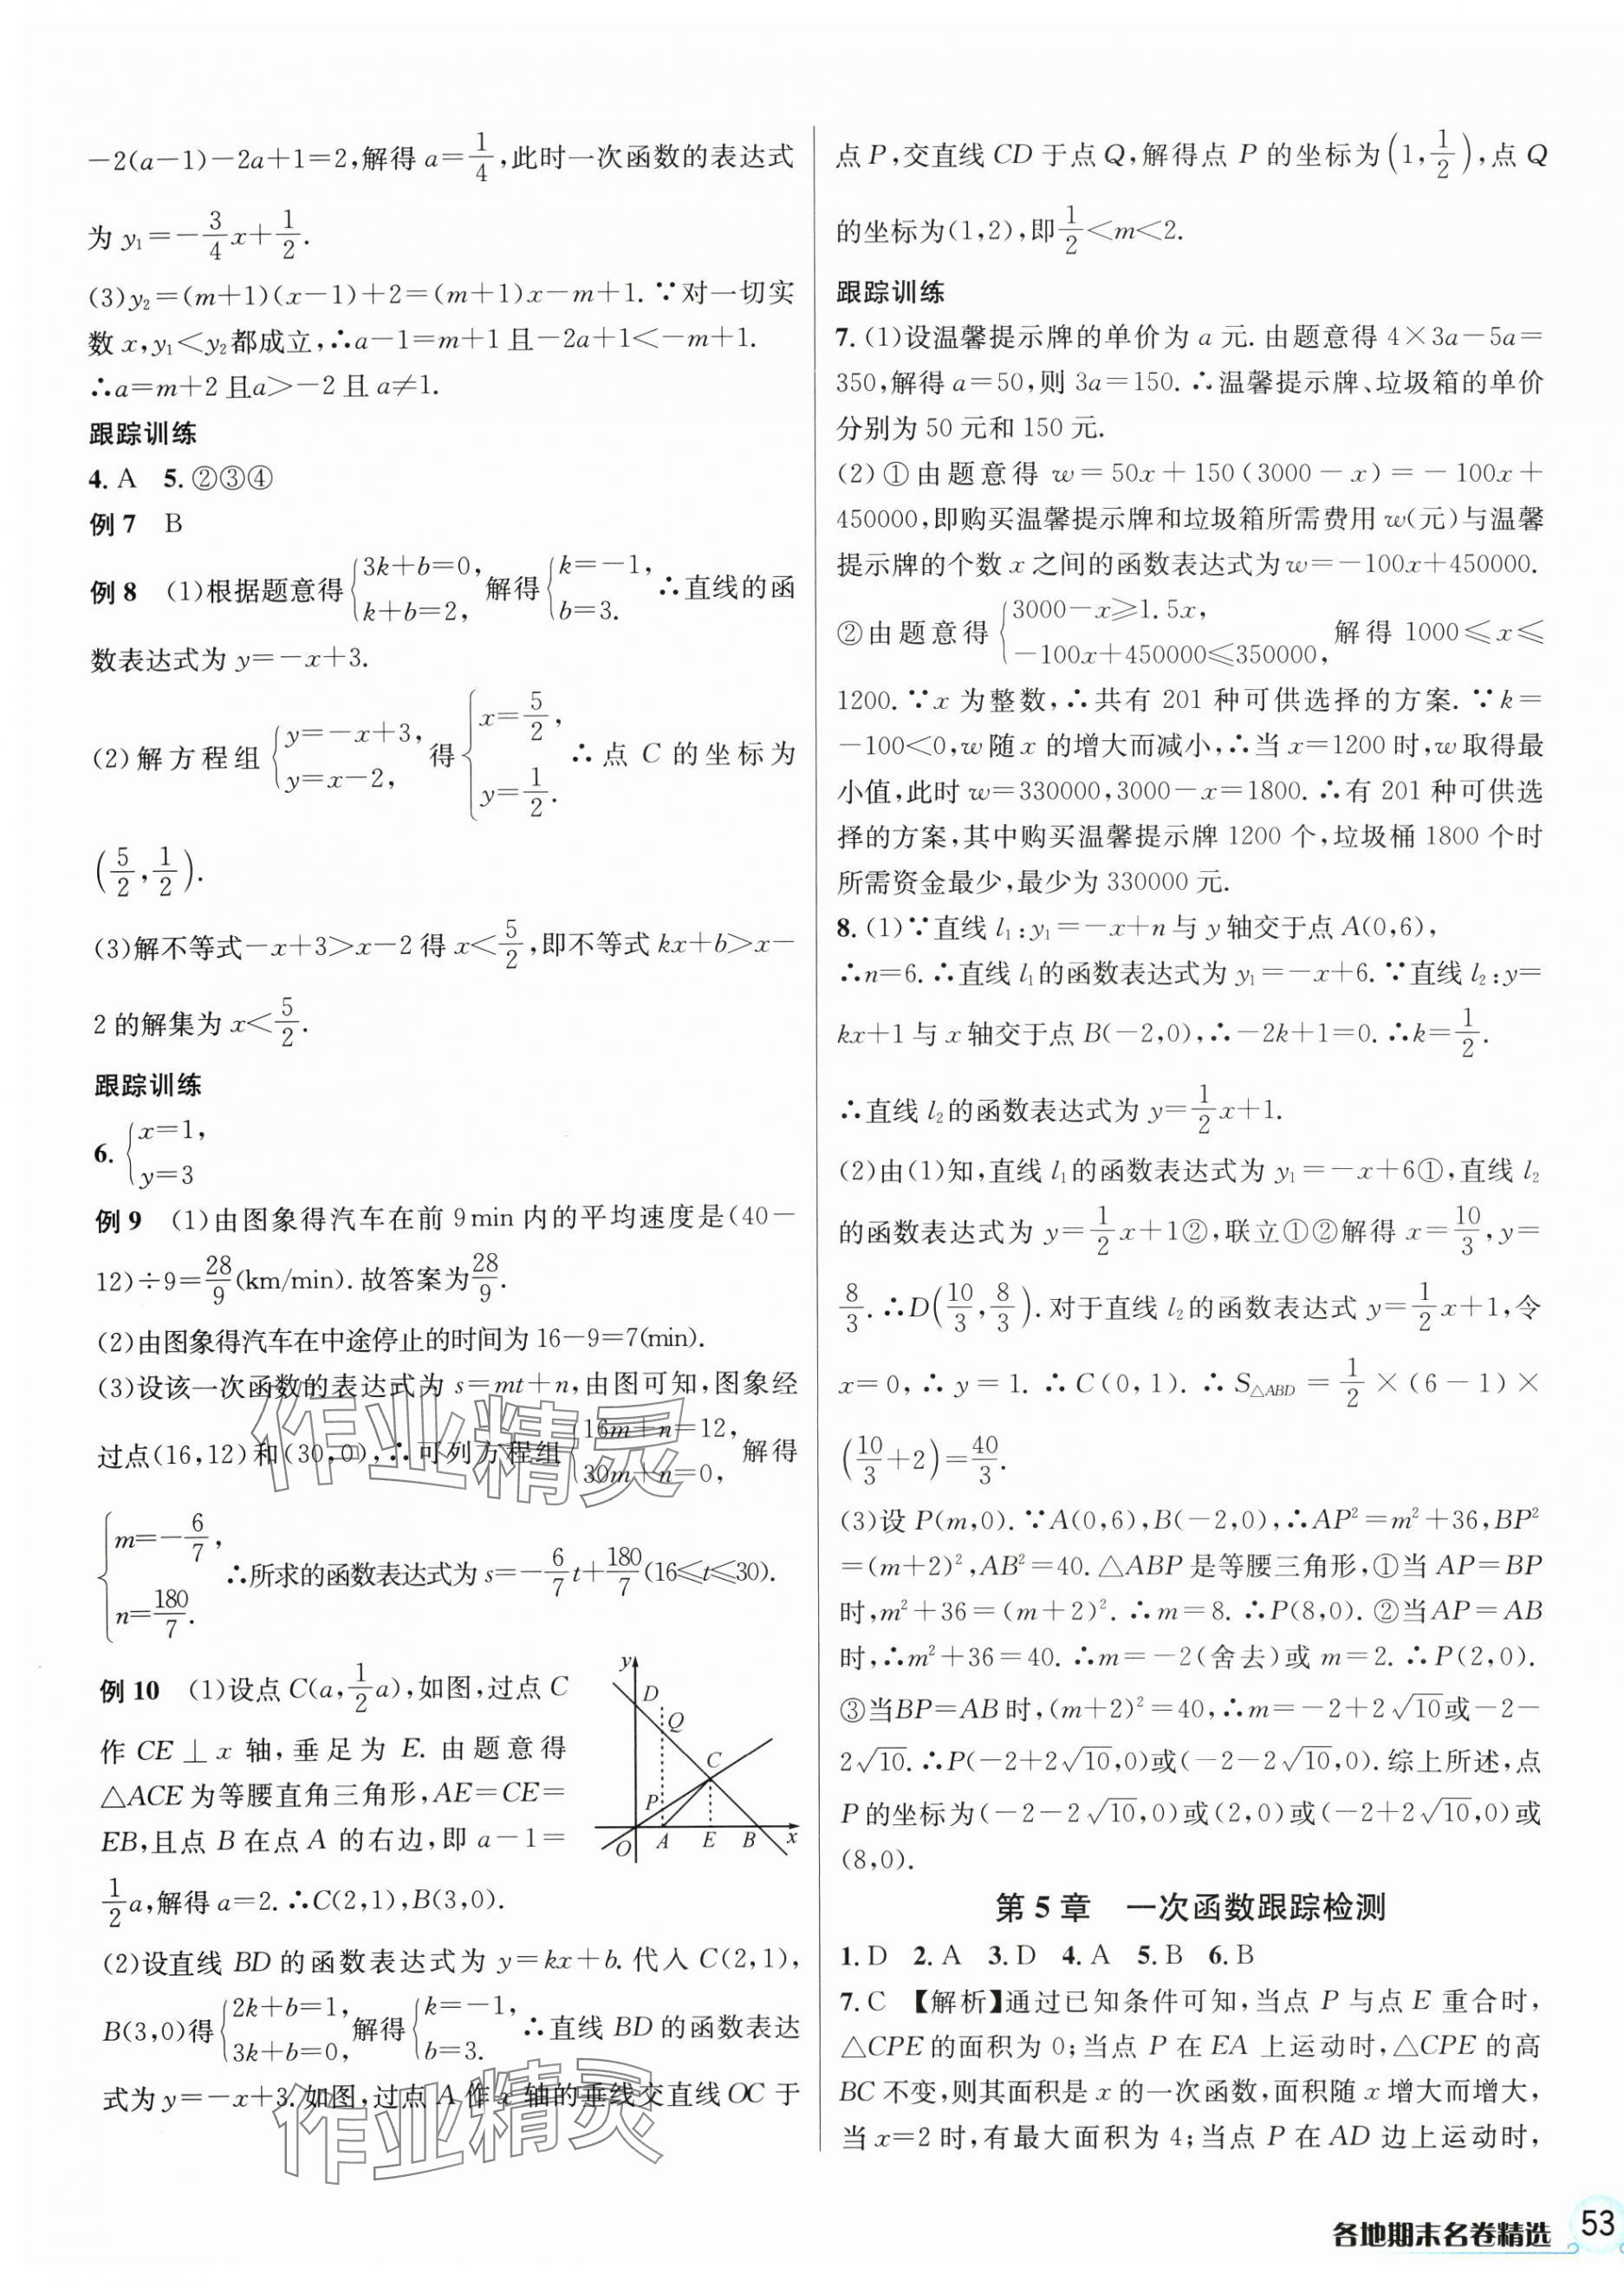 −2(a−1)−2a+1=2,解得 a=1/4,此时一次函数的表达式
为 y₁=−3/4x+1/2.
(3)y₂=(m+1)(x−1)+2=(m+1)x−m+1. ∵对一切实
数 x,y₁<y₂都成立,∴a−1=m+1 且−2a+1<−m+1.
∴a=m+2 且a>−2 且 a≠1.
跟踪训练
4. A 5. ②③④
例 7 B
例 8 (1)根据题意得{3k+b=0, k+b=2, 解得{k=−1, b=3. ∴直线的函
数表达式为 y=−x+3.
(2)解方程组{y=−x+3, y=x−2, 得{x=5/2, y=1/2. ∴点 C 的坐标为
(5/2,1/2).
(3)解不等式−x+3>x−2 得 x<5/2,即不等式 kx+b>x−
2 的解集为 x<5/2.
跟踪训练
6. {x=1, y=3
例 9 (1)由图象得汽车在前 9min 内的平均速度是(40−
12)÷9=28/9(km/min). 故答案为28/9.
(2)由图象得汽车在中途停止的时间为 16−9=7(min).
(3)设该一次函数的表达式为 s=mt+n,由图可知,图象经
过点(16,12)和(30,0),∴可列方程组{16m+n=12, 30m+n=0, 解得
{m=−6/7, n=180/7. ∴所求的函数表达式为 s=−6/7t+180/7(16≤t≤30).
例 10 (1)设点 C(a,1/2a),如图,过点 C
作 CE⊥x 轴,垂足为 E. 由题意得
△ACE 为等腰直角三角形,AE=CE=
EB,且点 B 在点 A 的右边,即 a−1=
1/2a,解得 a=2. ∴C(2,1),B(3,0).
y
D
Q
C
P
O A E B x
(2)设直线 BD 的函数表达式为 y=kx+b. 代入 C(2,1),
B(3,0)得{2k+b=1, 3k+b=0, 解得{k=−1, b=3. ∴直线 BD 的函数表达
式为 y=−x+3. 如图,过点 A 作 x 轴的垂线交直线 OC 于
点 P,交直线 CD 于点 Q,解得点 P 的坐标为(1,1/2),点 Q
的坐标为(1,2),即1/2<m<2.
跟踪训练
7. (1)设温馨提示牌的单价为 a 元. 由题意得 4×3a−5a=
350,解得 a=50,则 3a=150. ∴温馨提示牌、垃圾箱的单价
分别为 50 元和 150 元.
(2)①由题意得 w=50x+150(3000−x)=−100x+
450000,即购买温馨提示牌和垃圾箱所需费用 w(元)与温馨
提示牌的个数 x 之间的函数表达式为w=−100x+450000.
②由题意得{3000−x≥1.5x, −100x+450000≤350000, 解得 1000≤x≤
1200. ∵x 为整数,∴共有 201 种可供选择的方案. ∵k=
−100<0,w 随 x 的增大而减小,∴当 x=1200 时,w 取得最
小值,此时 w=330000,3000−x=1800. ∴有 201 种可供选
择的方案,其中购买温馨提示牌 1200 个,垃圾桶 1800 个时
所需资金最少,最少为 330000 元.
8. (1)∵直线 l₁:y₁=−x+n 与 y 轴交于点 A(0,6),
∴n=6. ∴直线 l₁的函数表达式为 y₁=−x+6. ∵直线 l₂:y=
kx+1 与 x 轴交于点 B(−2,0),∴−2k+1=0. ∴k=1/2.
∴直线 l₂的函数表达式为 y=1/2x+1.
(2)由(1)知,直线 l₁的函数表达式为 y₁=−x+6①,直线 l₂
的函数表达式为 y=1/2x+1②,联立①②解得 x=10/3,y=
8/3. ∴D(10/3,8/3). 对于直线 l₂的函数表达式 y=1/2x+1,令
x=0,∴y=1. ∴C(0,1). ∴S△ABD=1/2×(6−1)×
(10/3+2)=40/3.
(3)设 P(m,0). ∵A(0,6),B(−2,0),∴AP²=m²+36,BP²
=(m+2)²,AB²=40. △ABP 是等腰三角形,①当 AP=BP
时,m²+36=(m+2)². ∴m=8. ∴P(8,0). ②当 AP=AB
时,∴m²+36=40. ∴m=−2(舍去)或 m=2. ∴P(2,0).
③当BP=AB 时,(m+2)²=40,∴m=−2+2√10或−2−
2√10. ∴P(−2+2√10,0)或(−2−2√10,0). 综上所述,点
P 的坐标为(−2−2√10,0)或(2,0)或(−2+2√10,0)或
(8,0).
第 5 章 一次函数跟踪检测
1. D 2. A 3. D 4. A 5. B 6. B
7. C 【解析】通过已知条件可知,当点 P 与点 E 重合时,
△CPE 的面积为 0;当点 P 在 EA 上运动时,△CPE 的高
BC 不变,则其面积是 x 的一次函数,面积随 x 增大而增大,
当 x=2 时,有最大面积为 4;当点 P 在 AD 边上运动时,
作业精灵
作业精灵
各地期末名卷精选 53